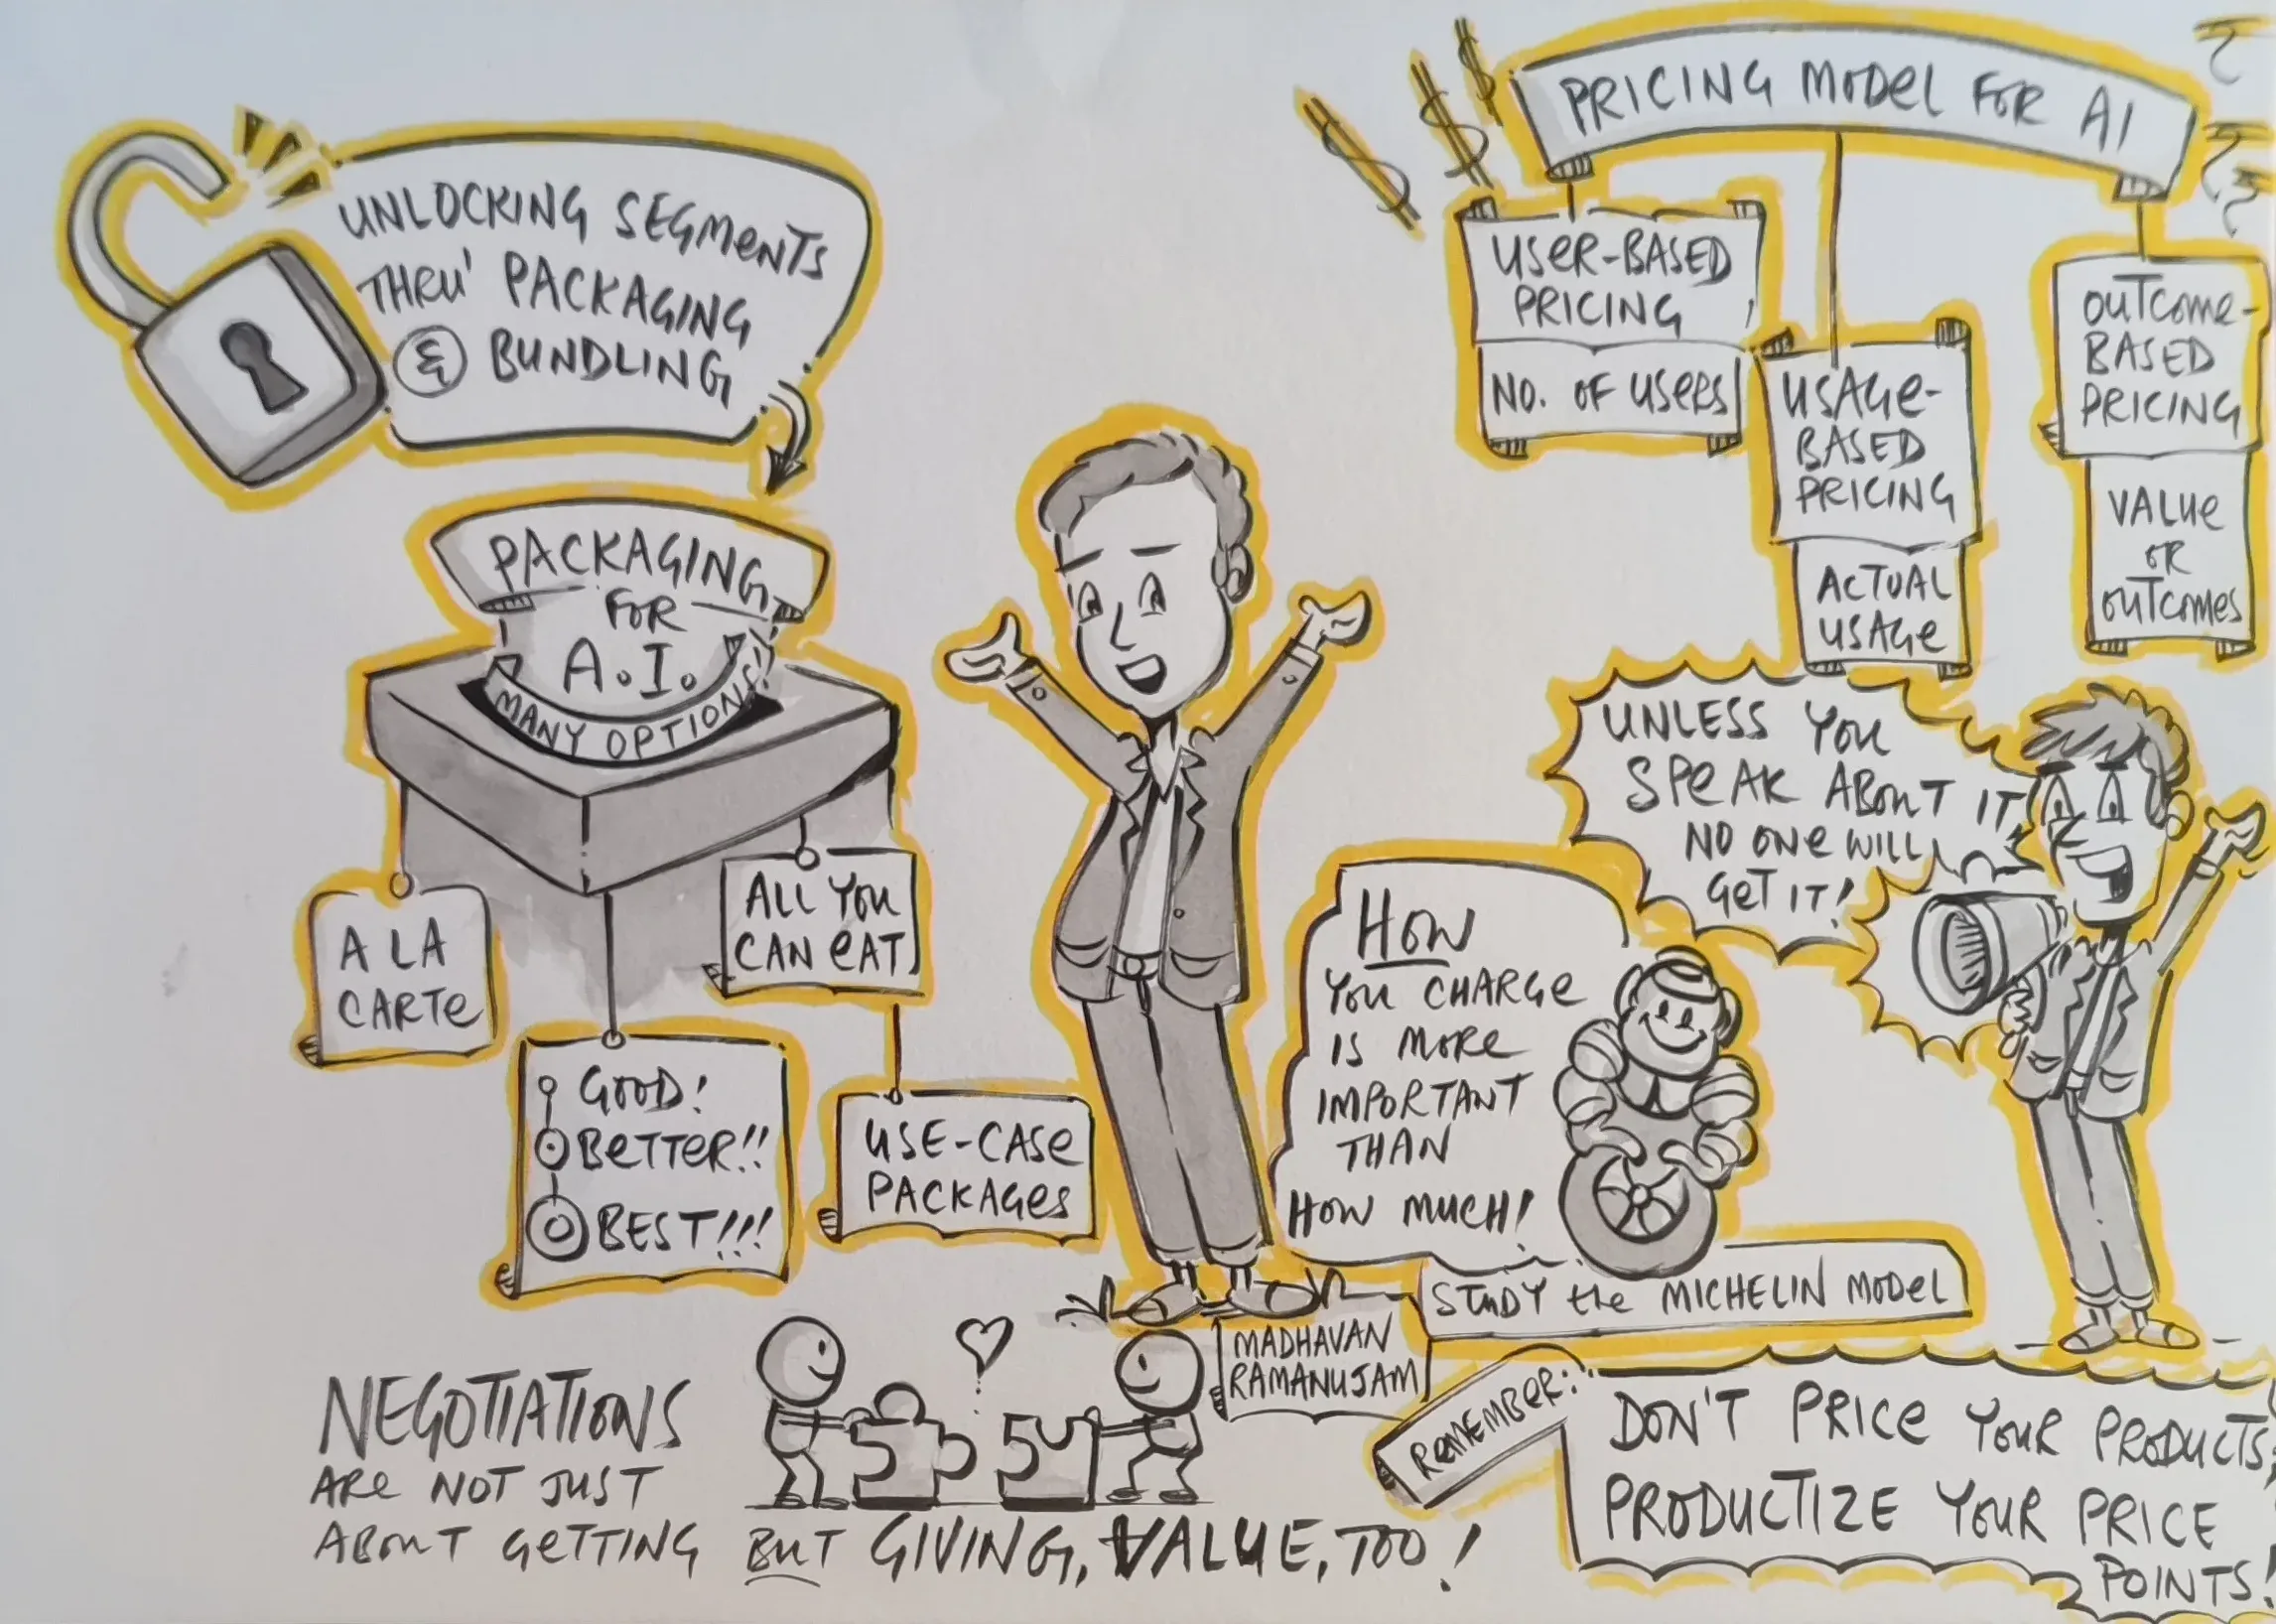 UNLOCKING SEGMENTS
THRU' PACKAGING
& BUNDLING
PACKAGING
FOR
A.I.
MANY OPTIONS!
A LA
CARTE
GOOD!
BETTER!!
BEST!!!
ALL YOU
CAN EAT
USE-CASE
PACKAGES
PRICING MODEL FOR AI
USER-BASED
PRICING
NO. OF USERS
USAGE-
BASED
PRICING
ACTUAL
USAGE
OUTCOME-
BASED
PRICING
VALUE
OR
OUTCOMES
UNLESS YOU
SPEAK ABOUT IT
NO ONE WILL
GET IT!
HOW
YOU CHARGE
IS MORE
IMPORTANT
THAN
HOW MUCH!
STUDY the MICHELIN MODEL
MADHAVAN
RAMANUJAM
NEGOTIATIONS
ARE NOT JUST
ABOUT GETTING BUT GIVING, VALUE, TOO!
REMEMBER:
DON'T PRICE YOUR PRODUCTS,
PRODUCTIZE YOUR PRICE
POINTS!